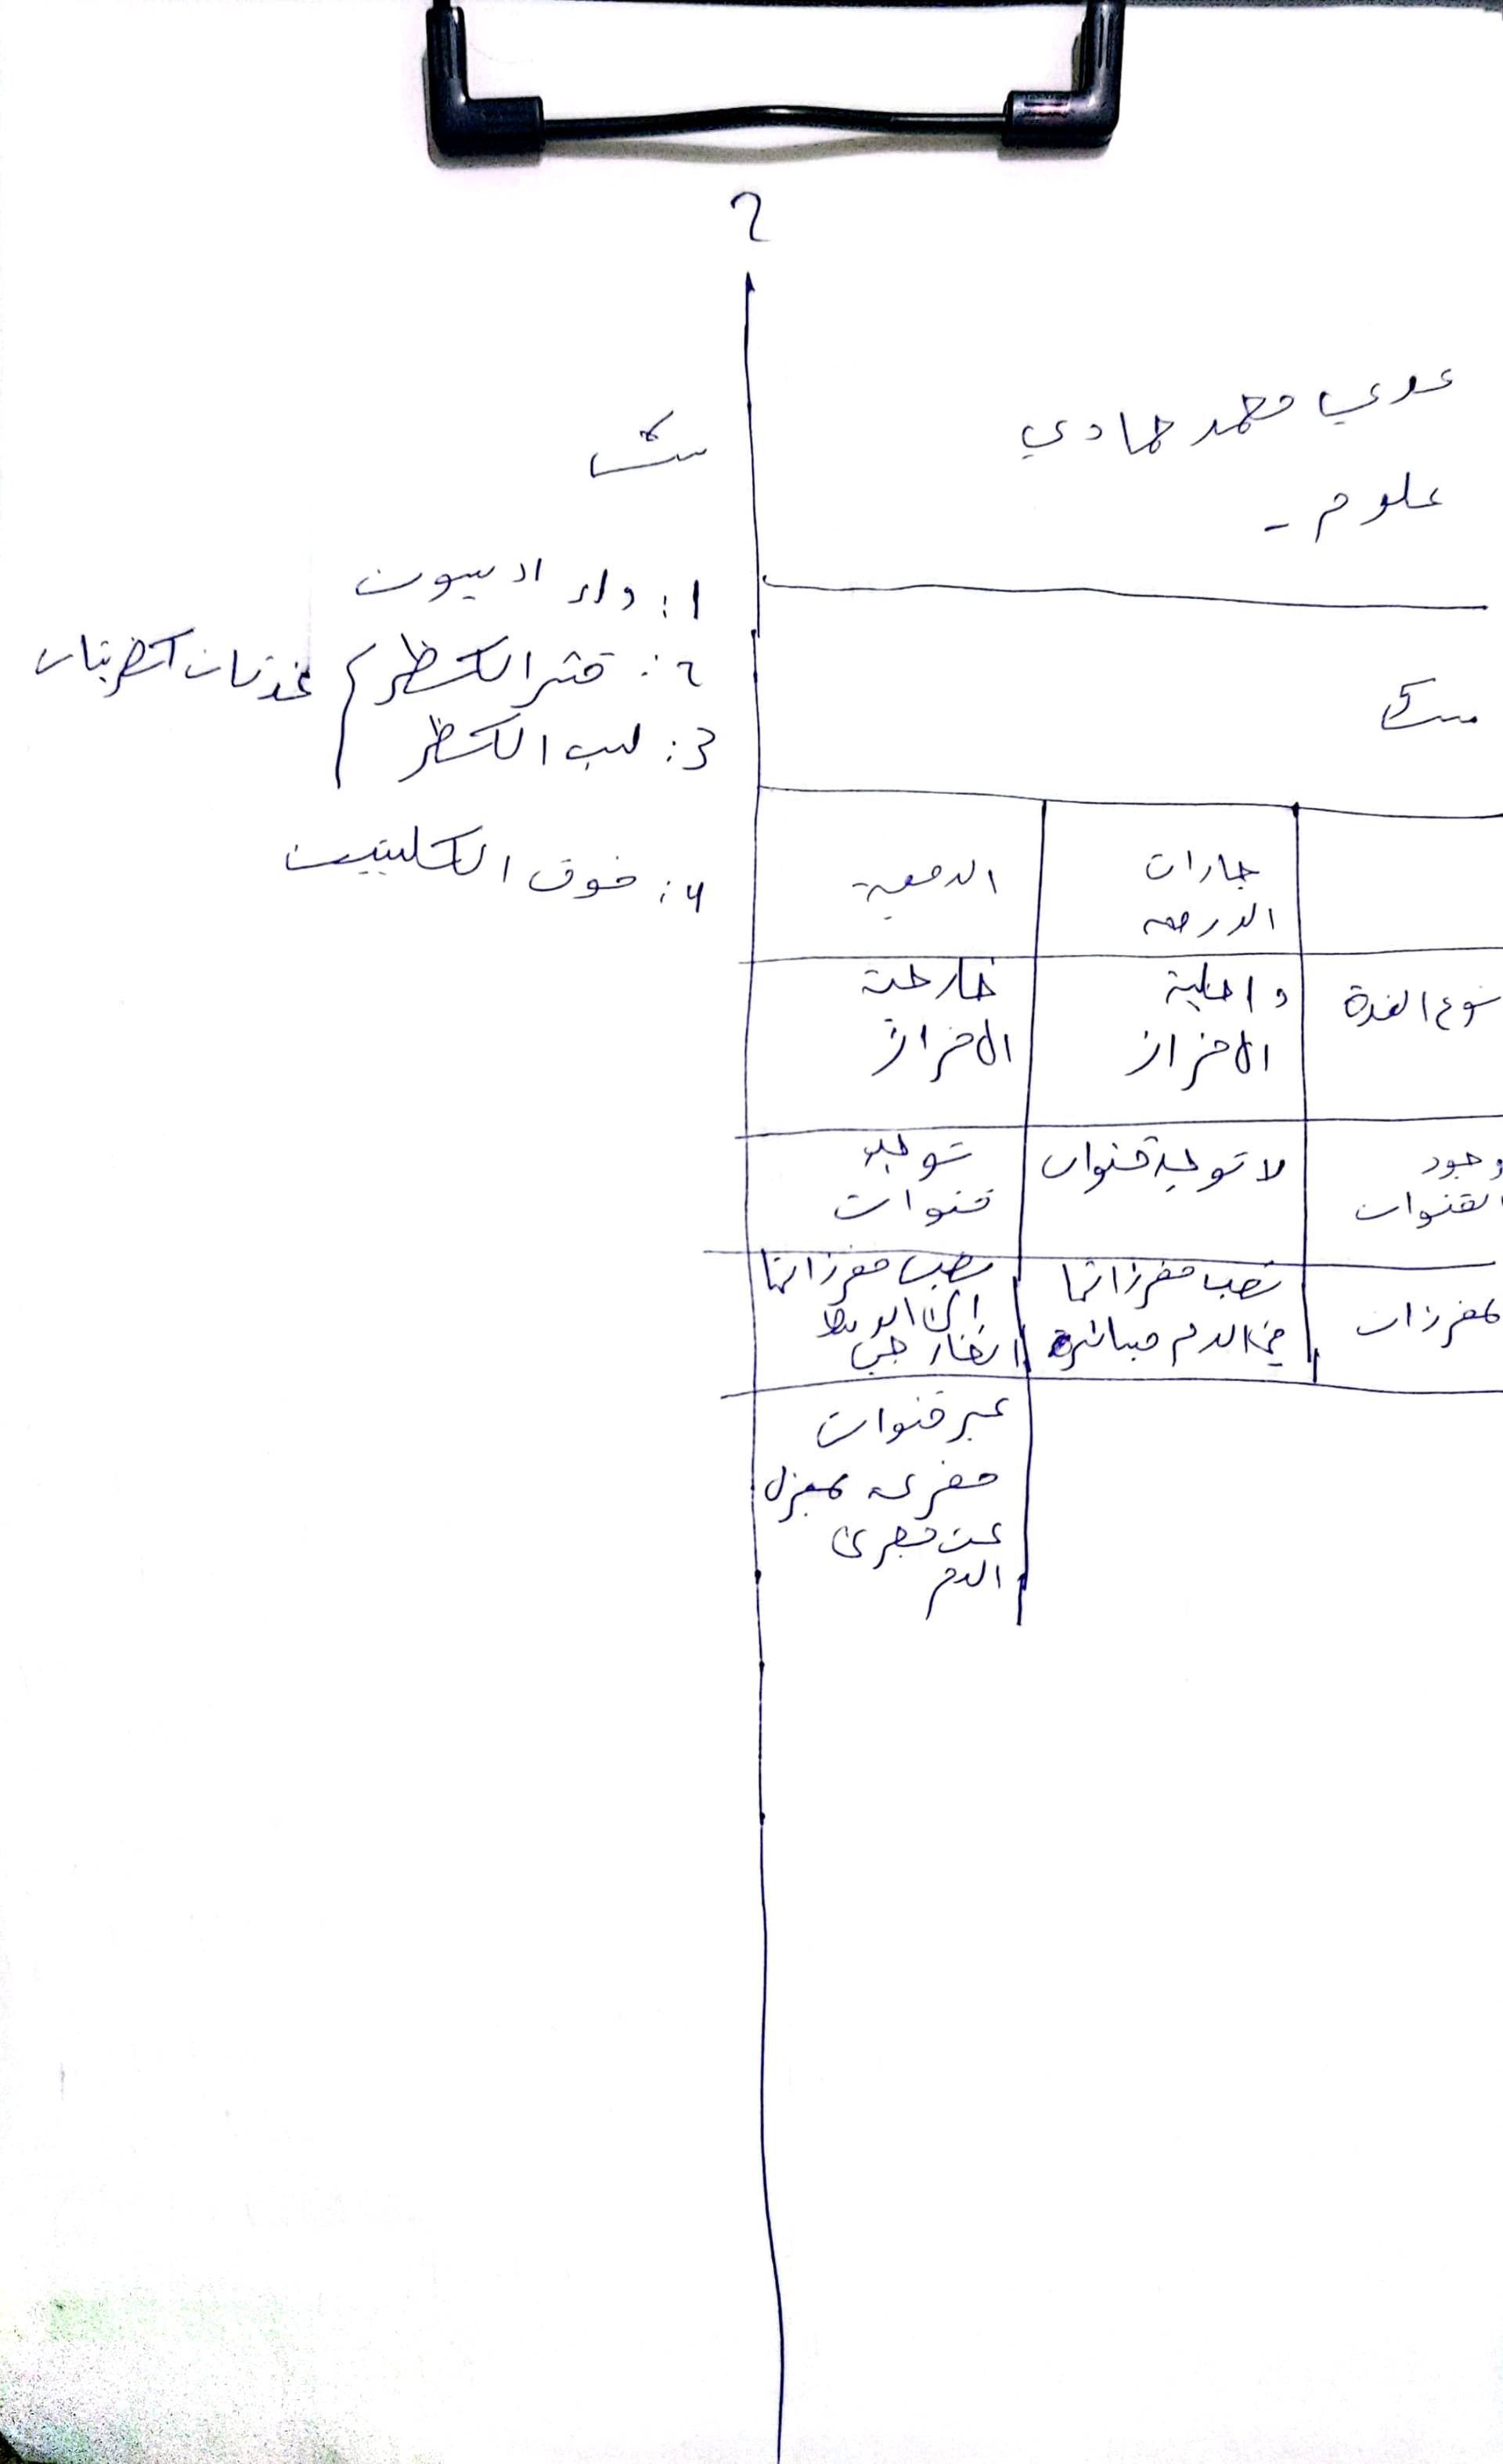 2
عدي محمد حمادي
علوم -
جارات الدرقية
الدمعية
نوع الغدة
داخلية الافراز
خارجية الافراز
وجود القنوات
لا توجد قنوات
توجد قنوات
المفرزات
تصب مفرزاتها
في الدم مباشرة
تصب مفرزاتها
إلى الوسط
الخارجي
عبر قنوات
مفرغة بمعزل
عن مجرى
الدم
1: داء اديسون
2: قشر الكظر
3: لب الكظر
4: فوق الكليتين